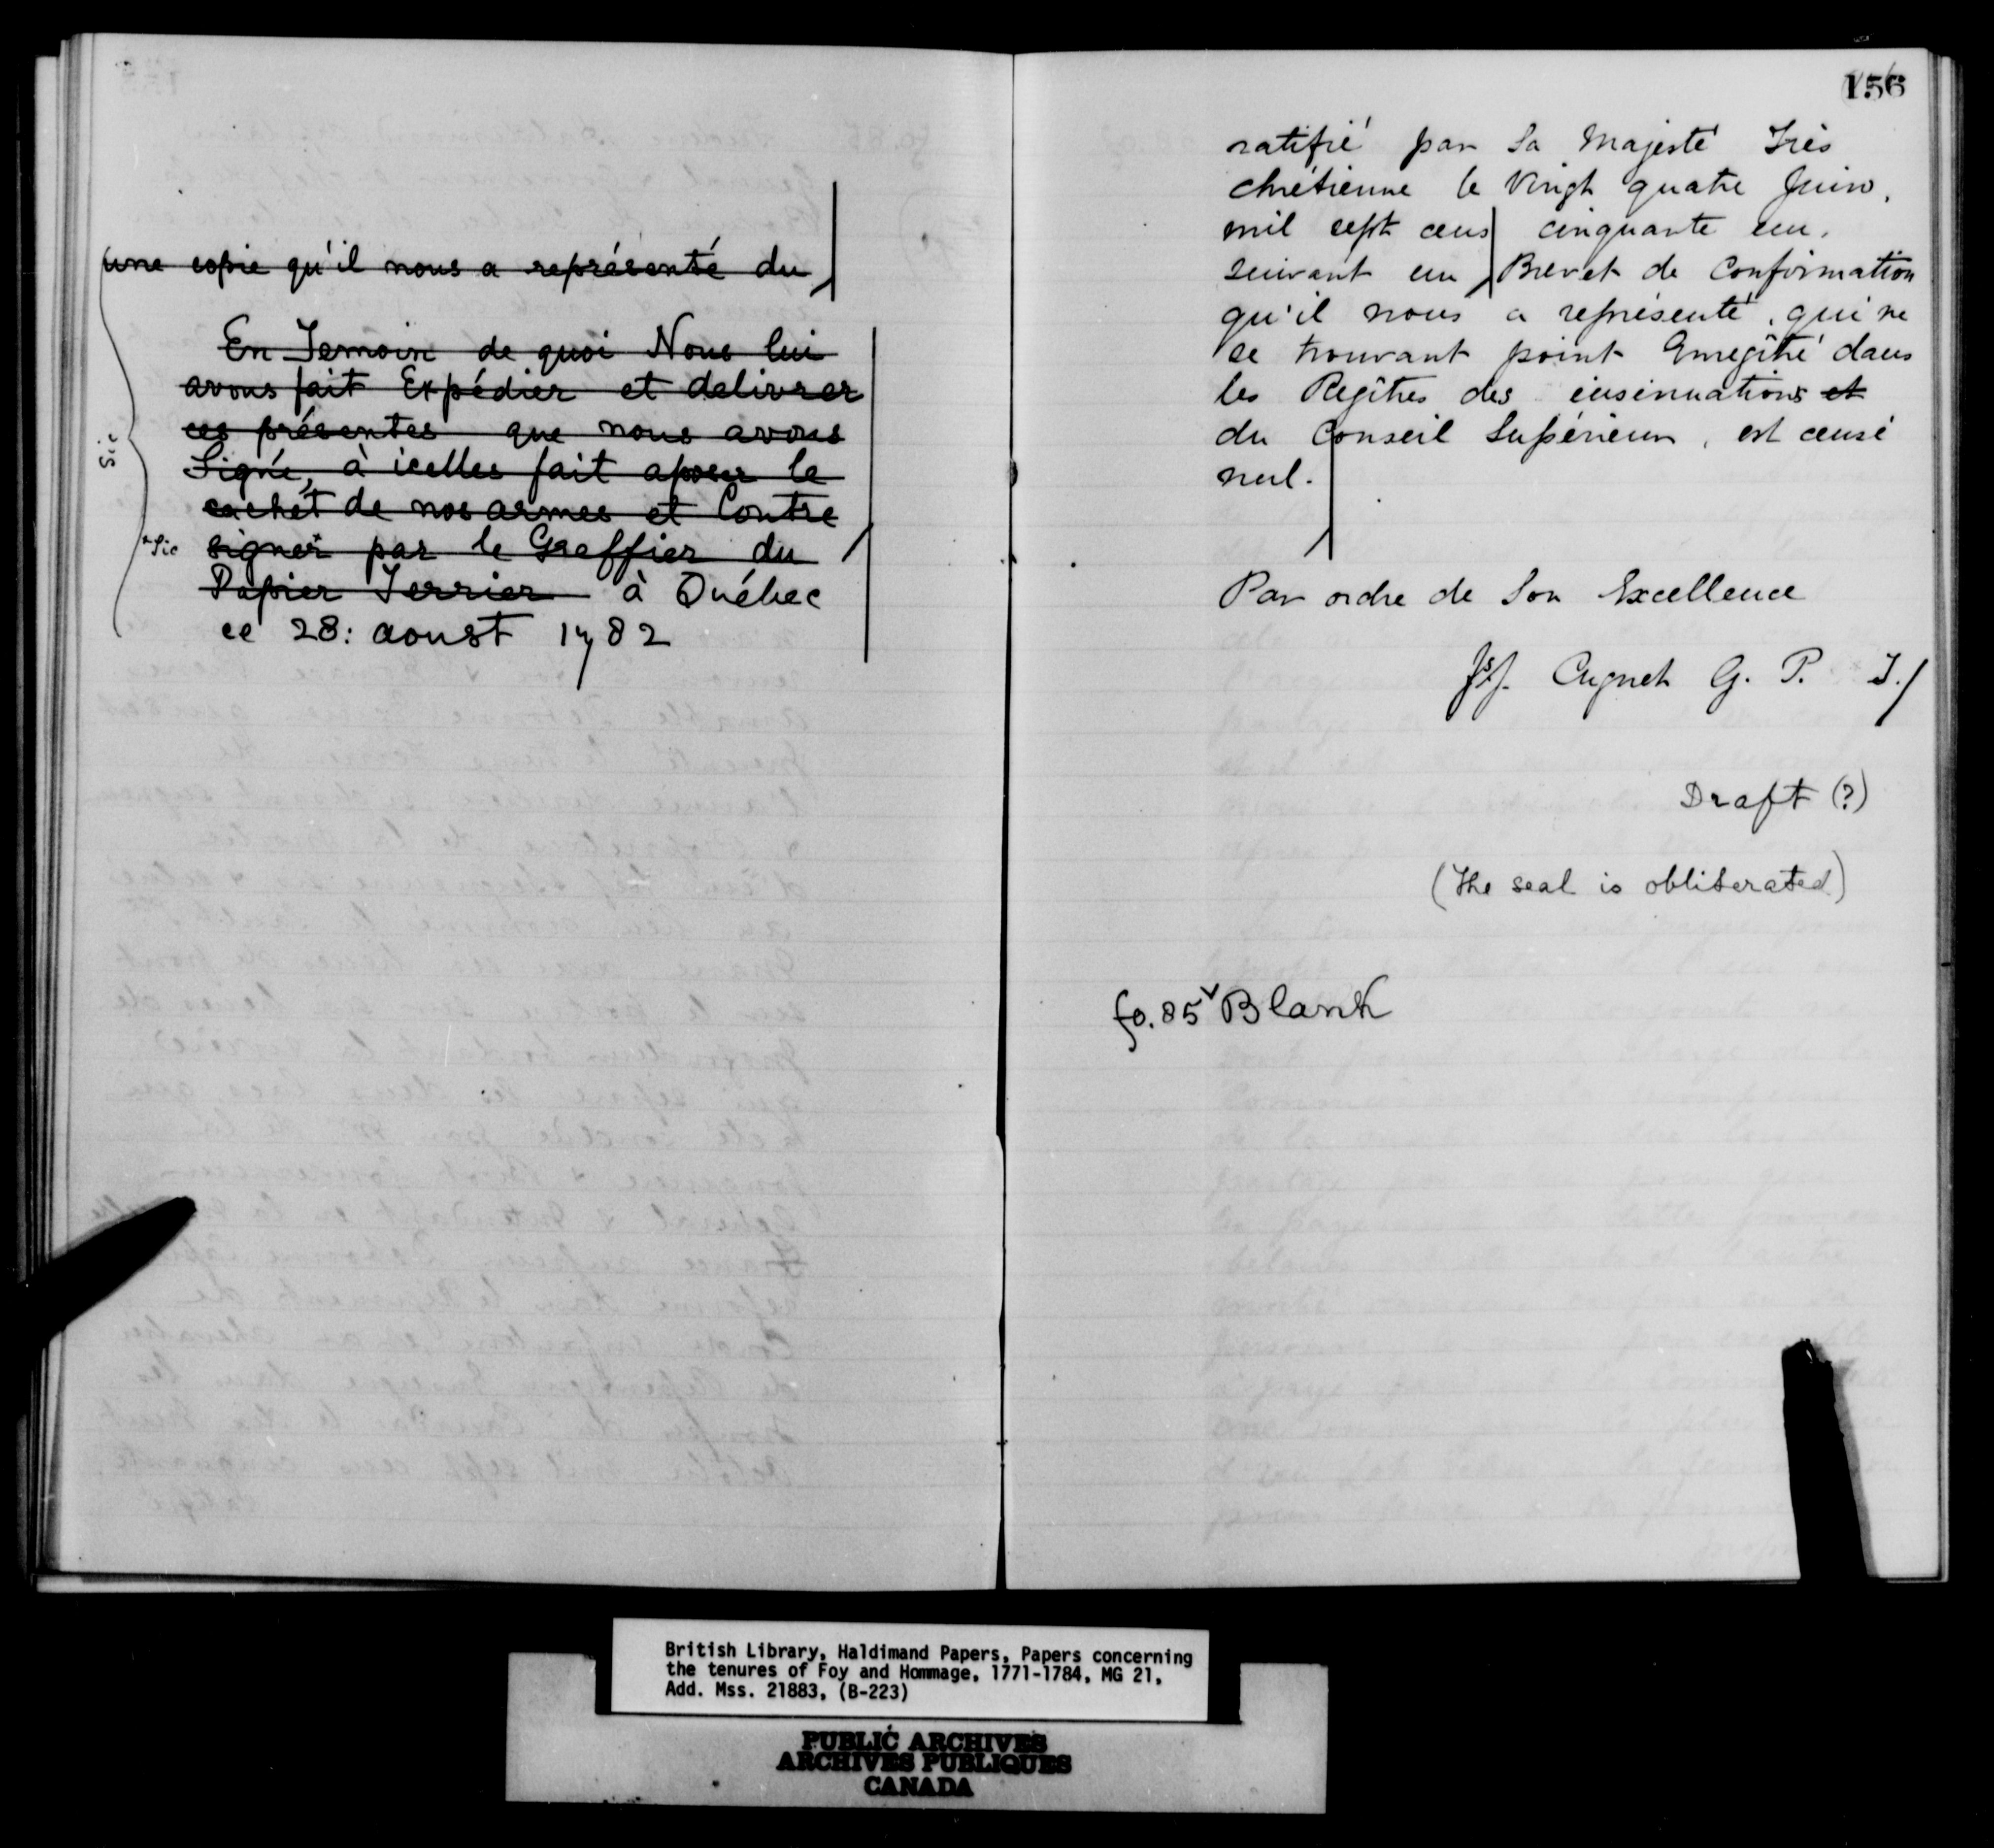 une copie qu'il nous a représenté du
En Temoin de quoi Nous lui
avons fait Expédier et delivrer
ces présentes que nous avons
Signé, à icelles fait aposer le
cachet de nos armes et Contre
signer* par le Greffier du
Papier Terrier à Québec
ce 28: aoust 1782
Sic
*Sic
156
ratifié par Sa Majesté Très
chrétienne le Vingt quatre Juin,
mil sept cens cinquante un,
suivant un Brevet de Confirmation
qu'il nous a représenté, qui ne
se trouvant point Enregitré dans
les Regîtres des insinuations et
du Conseil Supérieur, est censé
nul.
Par ordre de Son Excellence
Cugnet G. P. T./
Draft (?)
(The seal is obliterated)
fo. 85v Blank
British Library, Haldimand Papers, Papers concerning
the tenures of Foy and Hommage, 1771-1784, MG 21,
Add. Mss. 21883, (B-223)
PUBLIC ARCHIVES
ARCHIVES PUBLIQUES
CANADA